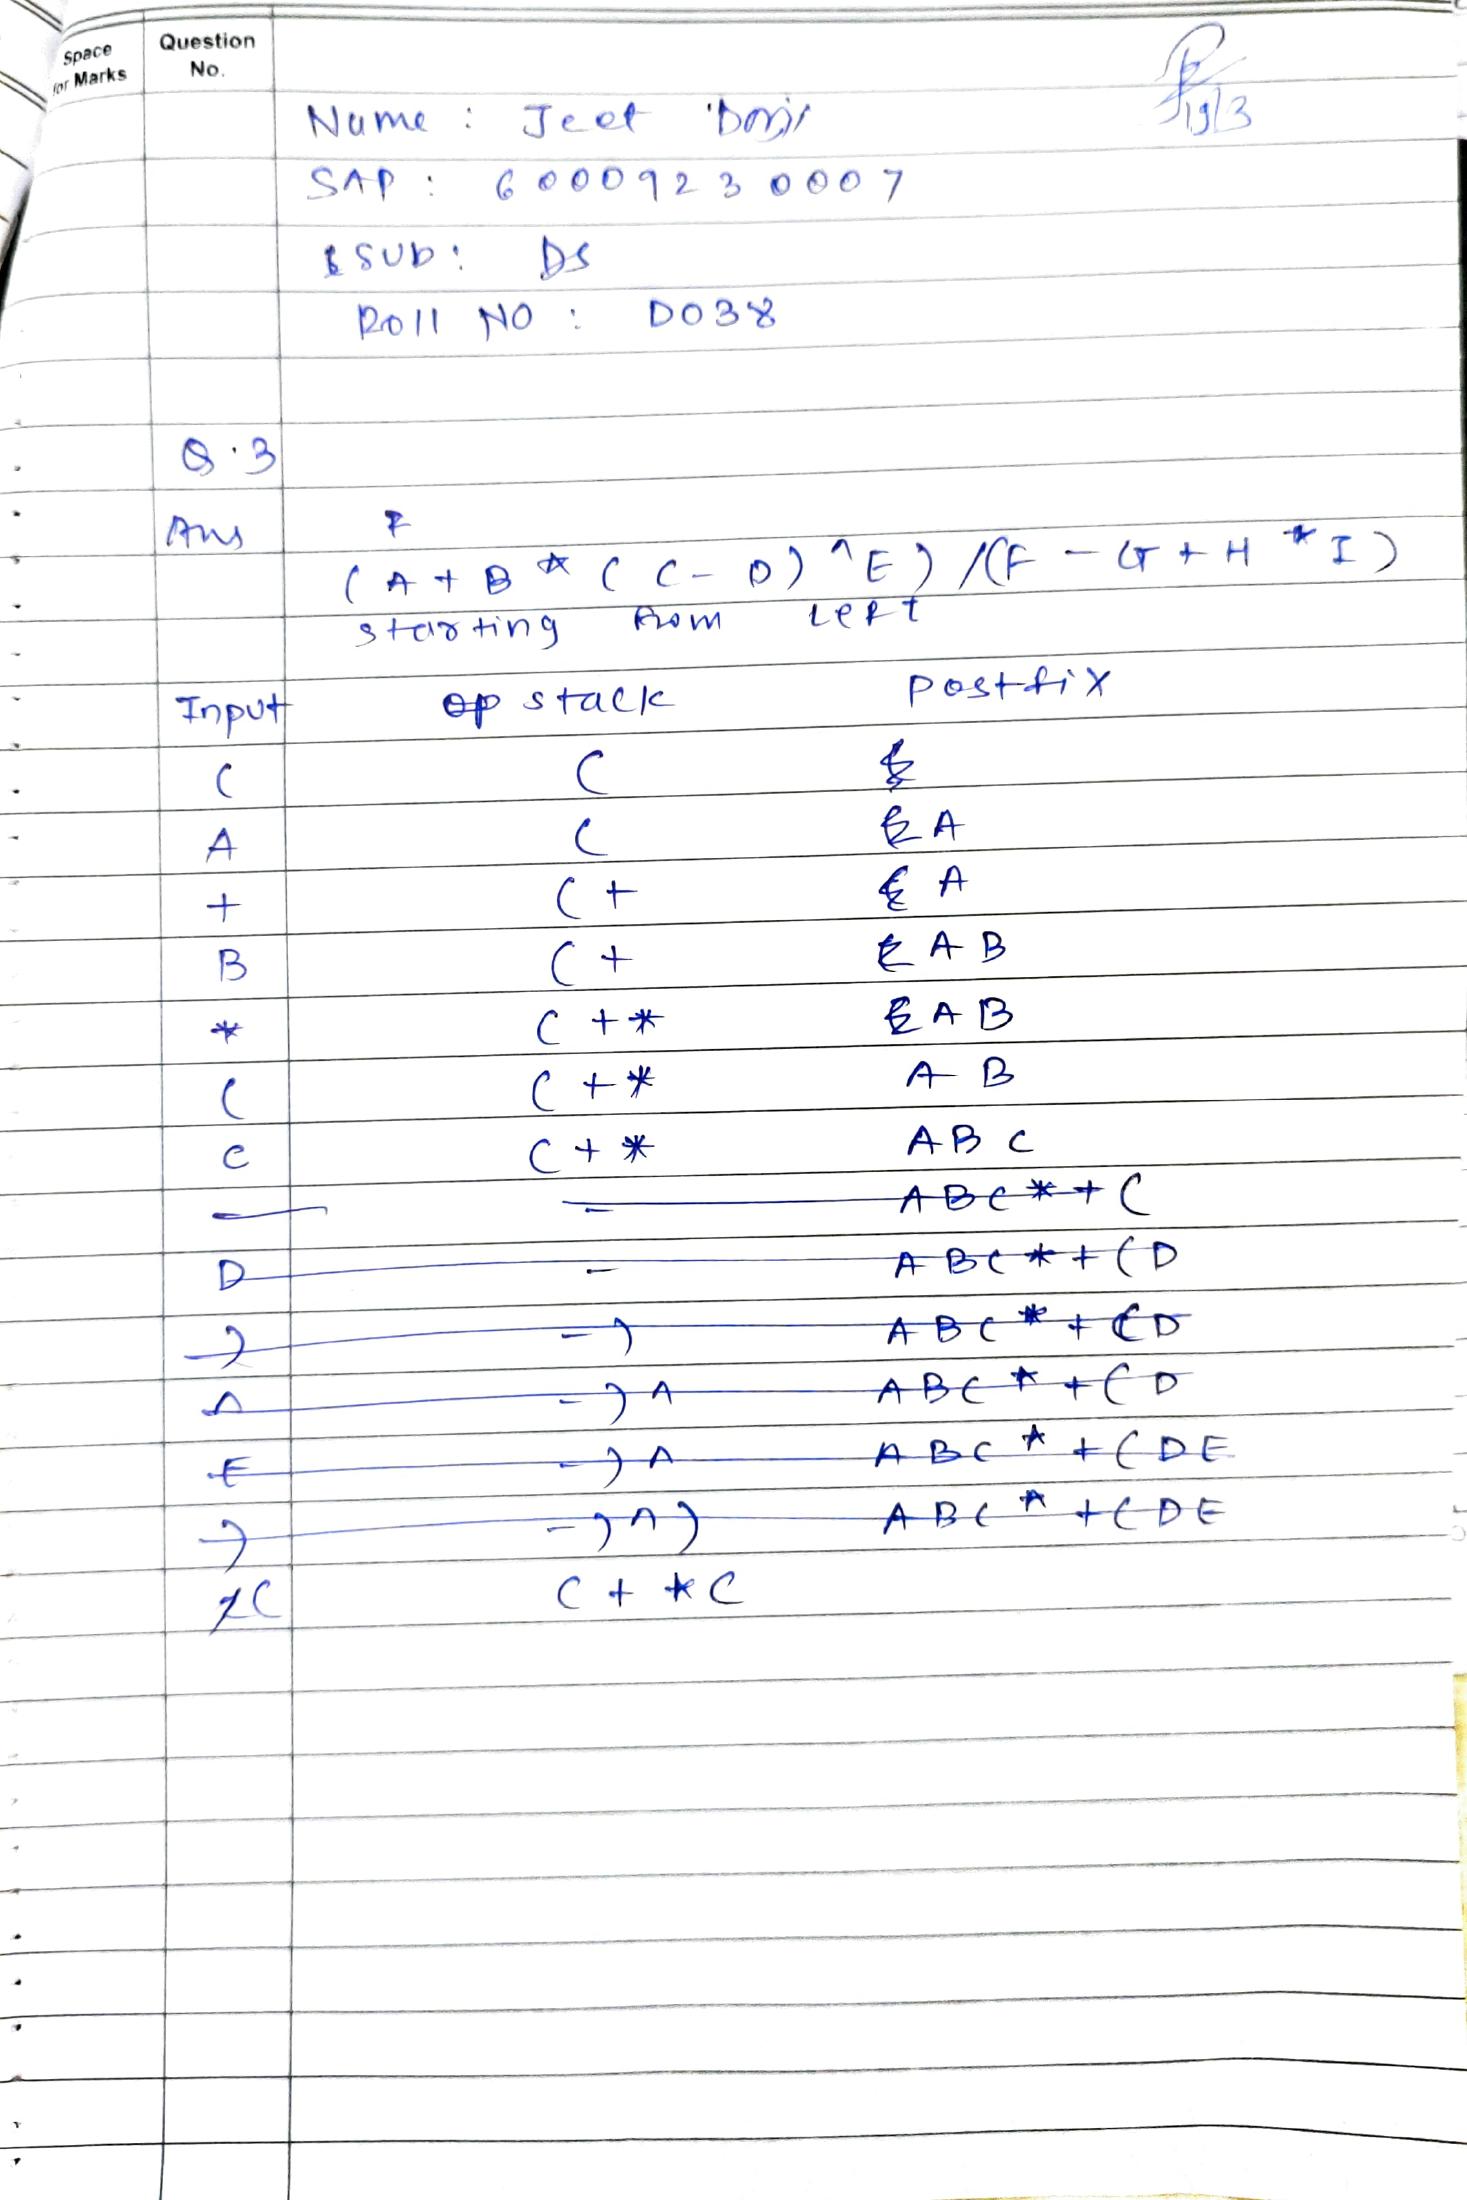 Space for Marks
Question No.
19/3
Name : Jeet
SAP : 60009230007
SUB : DS
Roll NO : D038
Q.3
Ans
(A + B * (C - D) ^ E) / (F - G + H * I)
starting from Left
Input op stack postfix
( (
A ( A
+ (+ A
B (+ AB
* (+* AB
( (+* AB
C (+* ABC
- - ABC*+(
D - ABC*+(D
) -) ABC*+(D
^ -)^ ABC*+(D
E -)^ ABC*+(DE
) -)^) ABC*+(DE
( (+*(